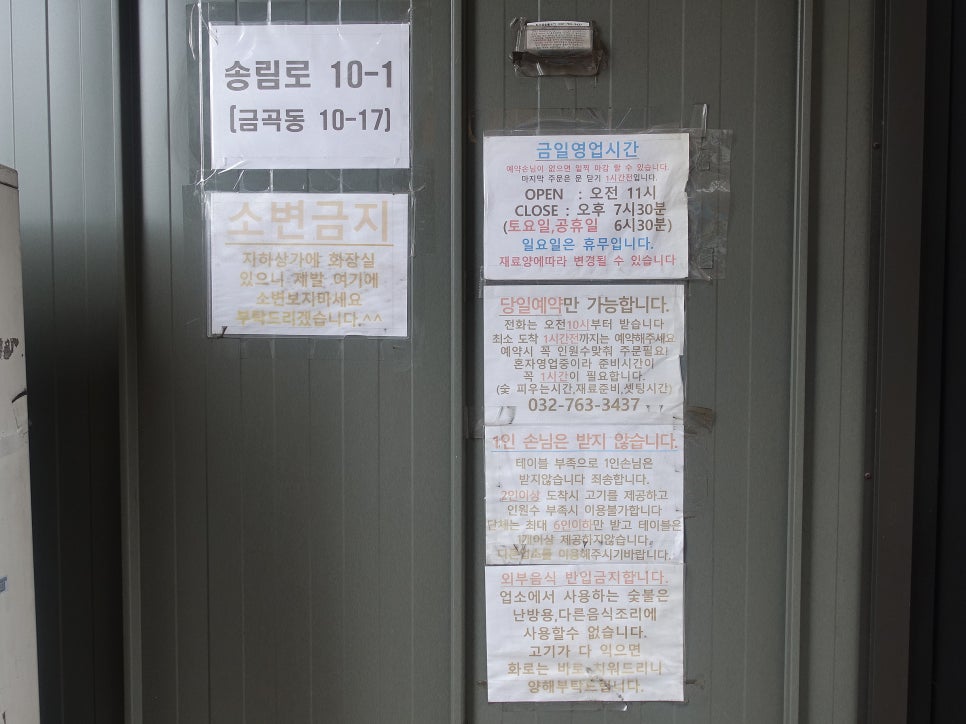 송림로 10-1
(금곡동 10-17)
소변금지
지하상가에 화장실
있으니 제발 여기에
소변보지마세요
부탁드리겠습니다.^^
금일영업시간
예약손님이 없으면 일찍 마감 할 수 있습니다.
마지막 주문은 문 닫기 1시간전입니다.
OPEN : 오전 11시
CLOSE : 오후 7시30분
(토요일,공휴일 6시30분)
일요일은 휴무입니다.
재료양에따라 변경될 수 있습니다
당일예약만 가능합니다.
전화는 오전10시부터 받습니다
최소 도착 1시간전까지는 예약해주세요
예약시 꼭 인원수맞춰 주문필요!
혼자영업중이라 준비시간이
꼭 1시간이 필요합니다.
(숯 피우는시간,재료준비,셋팅시간)
032-763-3437
1인 손님은 받지 않습니다.
테이블 부족으로 1인손님은
받지않습니다 죄송합니다.
2인이상 도착시 고기를 제공하고
인원수 부족시 이용불가합니다
단체는 최대 6인이하만 받고 테이블은
1개이상 제공하지않습니다.
다른업소를 이용해주시기바랍니다.
외부음식 반입금지합니다.
업소에서 사용하는 숯불은
난방용,다른음식조리에
사용할수 없습니다.
고기가 다 익으면
화로는 바로 치워드리니
양해부탁드립니다.